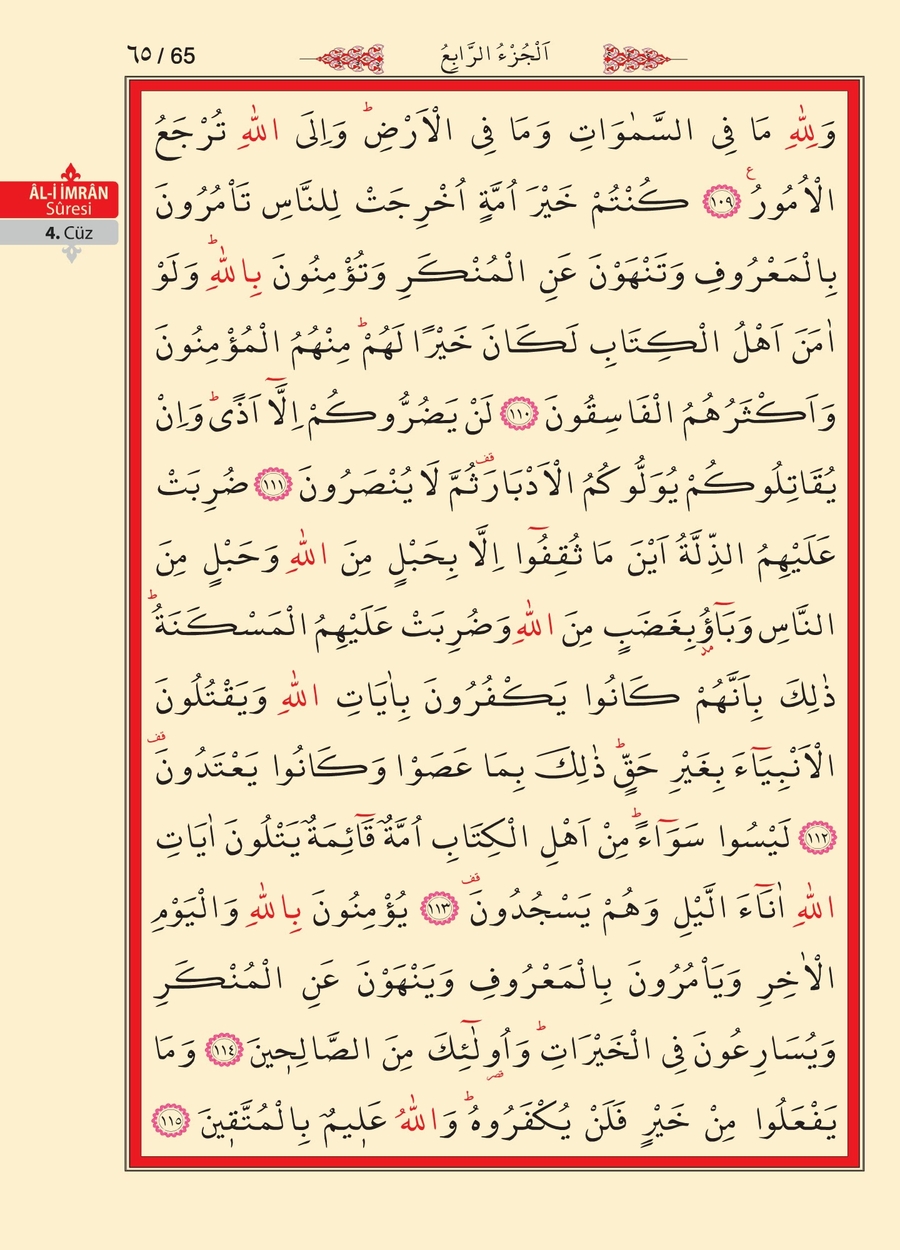 ٦٥ / 65
اَلْجُزْءُ الرَّابِعُ
ÂL-İ İMRÂN
Sûresi
4. Cüz
وَلِلّٰهِ مَا فِى السَّمٰوَاتِ وَمَا فِى الْاَرْضِۜ وَاِلَى اللّٰهِ تُرْجَعُ
الْاُمُورُ۟ ﴿١٠٩﴾ كُنْتُمْ خَيْرَ اُمَّةٍ اُخْرِجَتْ لِلنَّاسِ تَاْمُرُونَ
بِالْمَعْرُوفِ وَتَنْهَوْنَ عَنِ الْمُنْكَرِ وَتُؤْمِنُونَ بِاللّٰهِۜ وَلَوْ
اٰمَنَ اَهْلُ الْكِتَابِ لَكَانَ خَيْرًا لَهُمْۜ مِنْهُمُ الْمُؤْمِنُونَ
وَاَكْثَرُهُمُ الْفَاسِقُونَ ﴿١١٠﴾ لَنْ يَضُرُّوكُمْ اِلَّٓا اَذًىۜ وَاِنْ
يُقَاتِلُوكُمْ يُوَلُّوكُمُ الْاَدْبَارَ۠ ثُمَّ لَا يُنْصَرُونَ ﴿١١١﴾ ضُرِبَتْ
عَلَيْهِمُ الذِّلَّةُ اَيْنَ مَا ثُقِفُٓوا اِلَّا بِحَبْلٍ مِنَ اللّٰهِ وَحَبْلٍ مِنَ
النَّاسِ وَبَٓاؤُ بِغَضَبٍ مِنَ اللّٰهِ وَضُرِبَتْ عَلَيْهِمُ الْمَسْكَنَةُۜ
ذٰلِكَ بِاَنَّهُمْ كَانُوا يَكْفُرُونَ بِاٰيَاتِ اللّٰهِ وَيَقْتُلُونَ
الْاَنْبِيَٓاءَ بِغَيْرِ حَقٍّۜ ذٰلِكَ بِمَا عَصَوْا وَكَانُوا يَعْتَدُونَ۠
﴿١١٢﴾ لَيْسُوا سَوَٓاءًۜ مِنْ اَهْلِ الْكِتَابِ اُمَّةٌ قَٓائِمَةٌ يَتْلُونَ اٰيَاتِ
اللّٰهِ اٰنَٓاءَ الَّيْلِ وَهُمْ يَسْجُدُونَ۠ ﴿١١٣﴾ يُؤْمِنُونَ بِاللّٰهِ وَالْيَوْمِ
الْاٰخِرِ وَيَاْمُرُونَ بِالْمَعْرُوفِ وَيَنْهَوْنَ عَنِ الْمُنْكَرِ
وَيُسَارِعُونَ فِى الْخَيْرَاتِۜ وَاُولٰٓئِكَ مِنَ الصَّالِحٖينَ ﴿١١٤﴾ وَمَا
يَفْعَلُوا مِنْ خَيْرٍ فَلَنْ يُكْفَرُوهُۜ وَاللّٰهُ عَلٖيمٌ بِالْمُتَّقٖينَ ﴿١١٥﴾